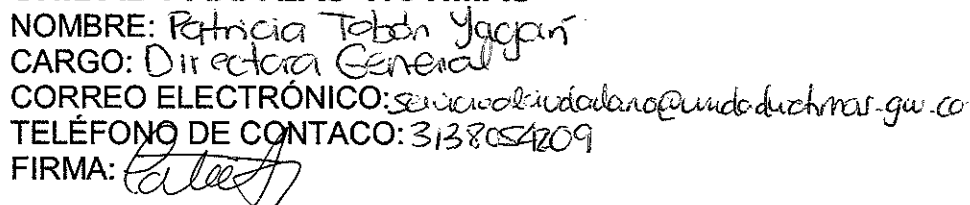 NOMBRE: Patricia Tobón Yagarí
CARGO: Directora General
CORREO ELECTRÓNICO: servicioalciudadano@unidadvictimas.gov.co
TELÉFONO DE CONTACO: 3138054209
FIRMA: